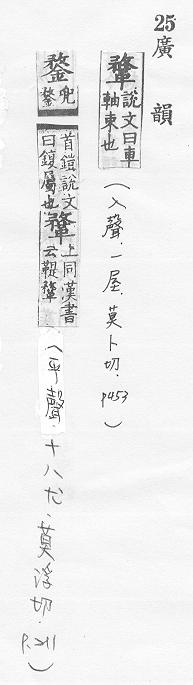 25 廣韻
鞪 說文曰車
軸束也
(入聲.一屋.莫卜切.p453)
鍪 兜
鍪
首鎧說文
曰鍑屬也
鞪 上同漢書
云鞮鞪
(平聲.十八尤.莫浮切.P.211)